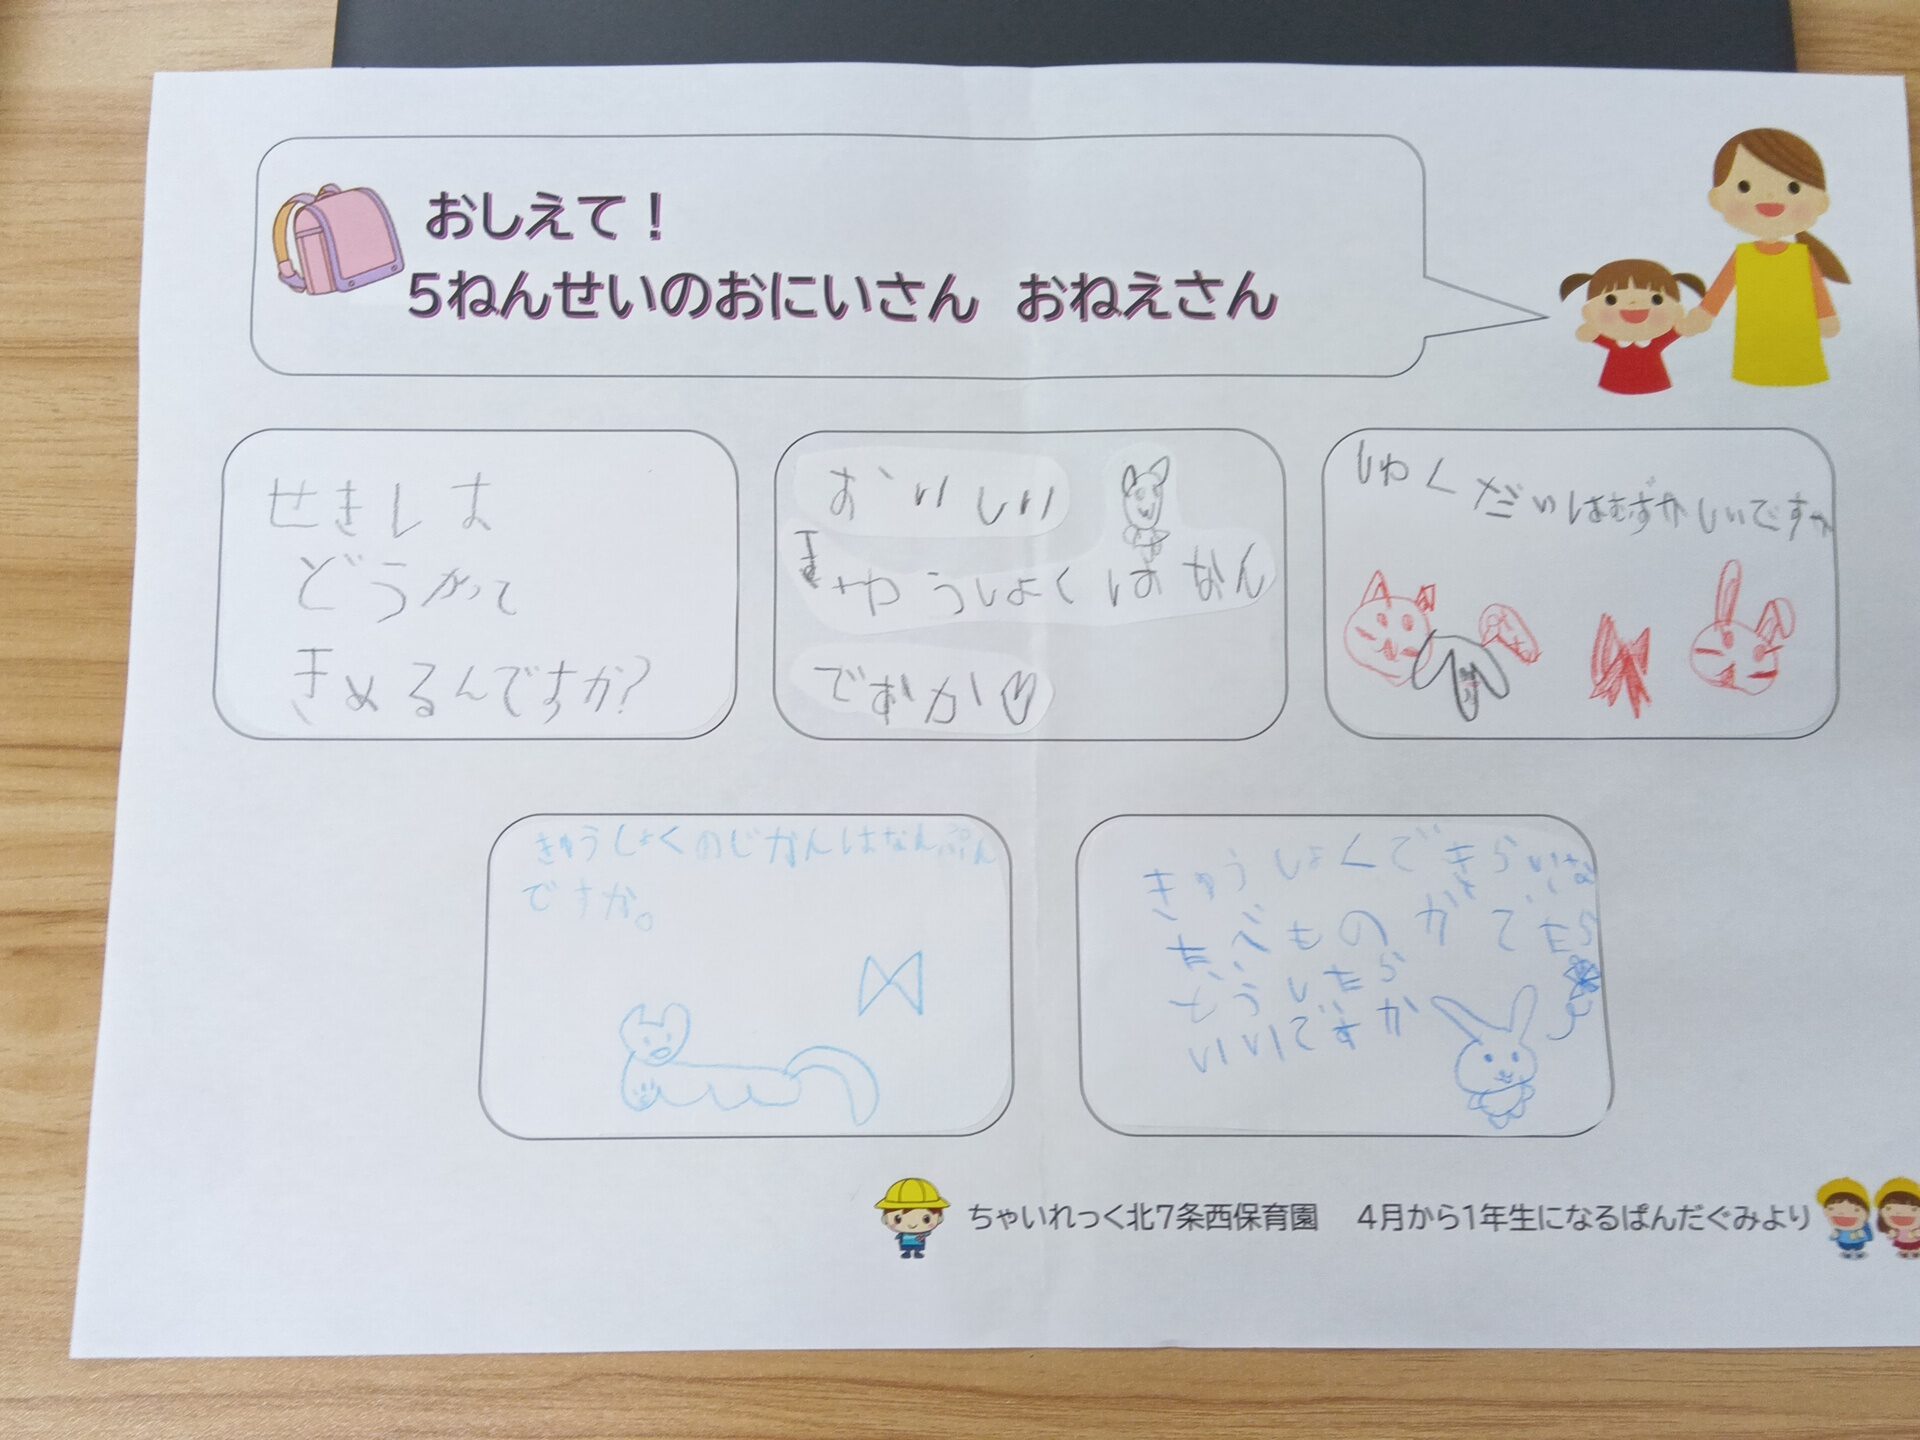 おしえて！
5ねんせいのおにいさん おねえさん
せきしは
どうかって
きめるんですか?
おいしい
きゅうしょくはなん
ですか♡
しゅくだいはむずかしいですか
きゅうしょくのじかんはなんぷん
ですか。
きゅうしょくできらいな
たべものがでたら
どうしたら
いいですか
ちゃいれっく北7条西保育園 4月から1年生になるぱんだぐみより